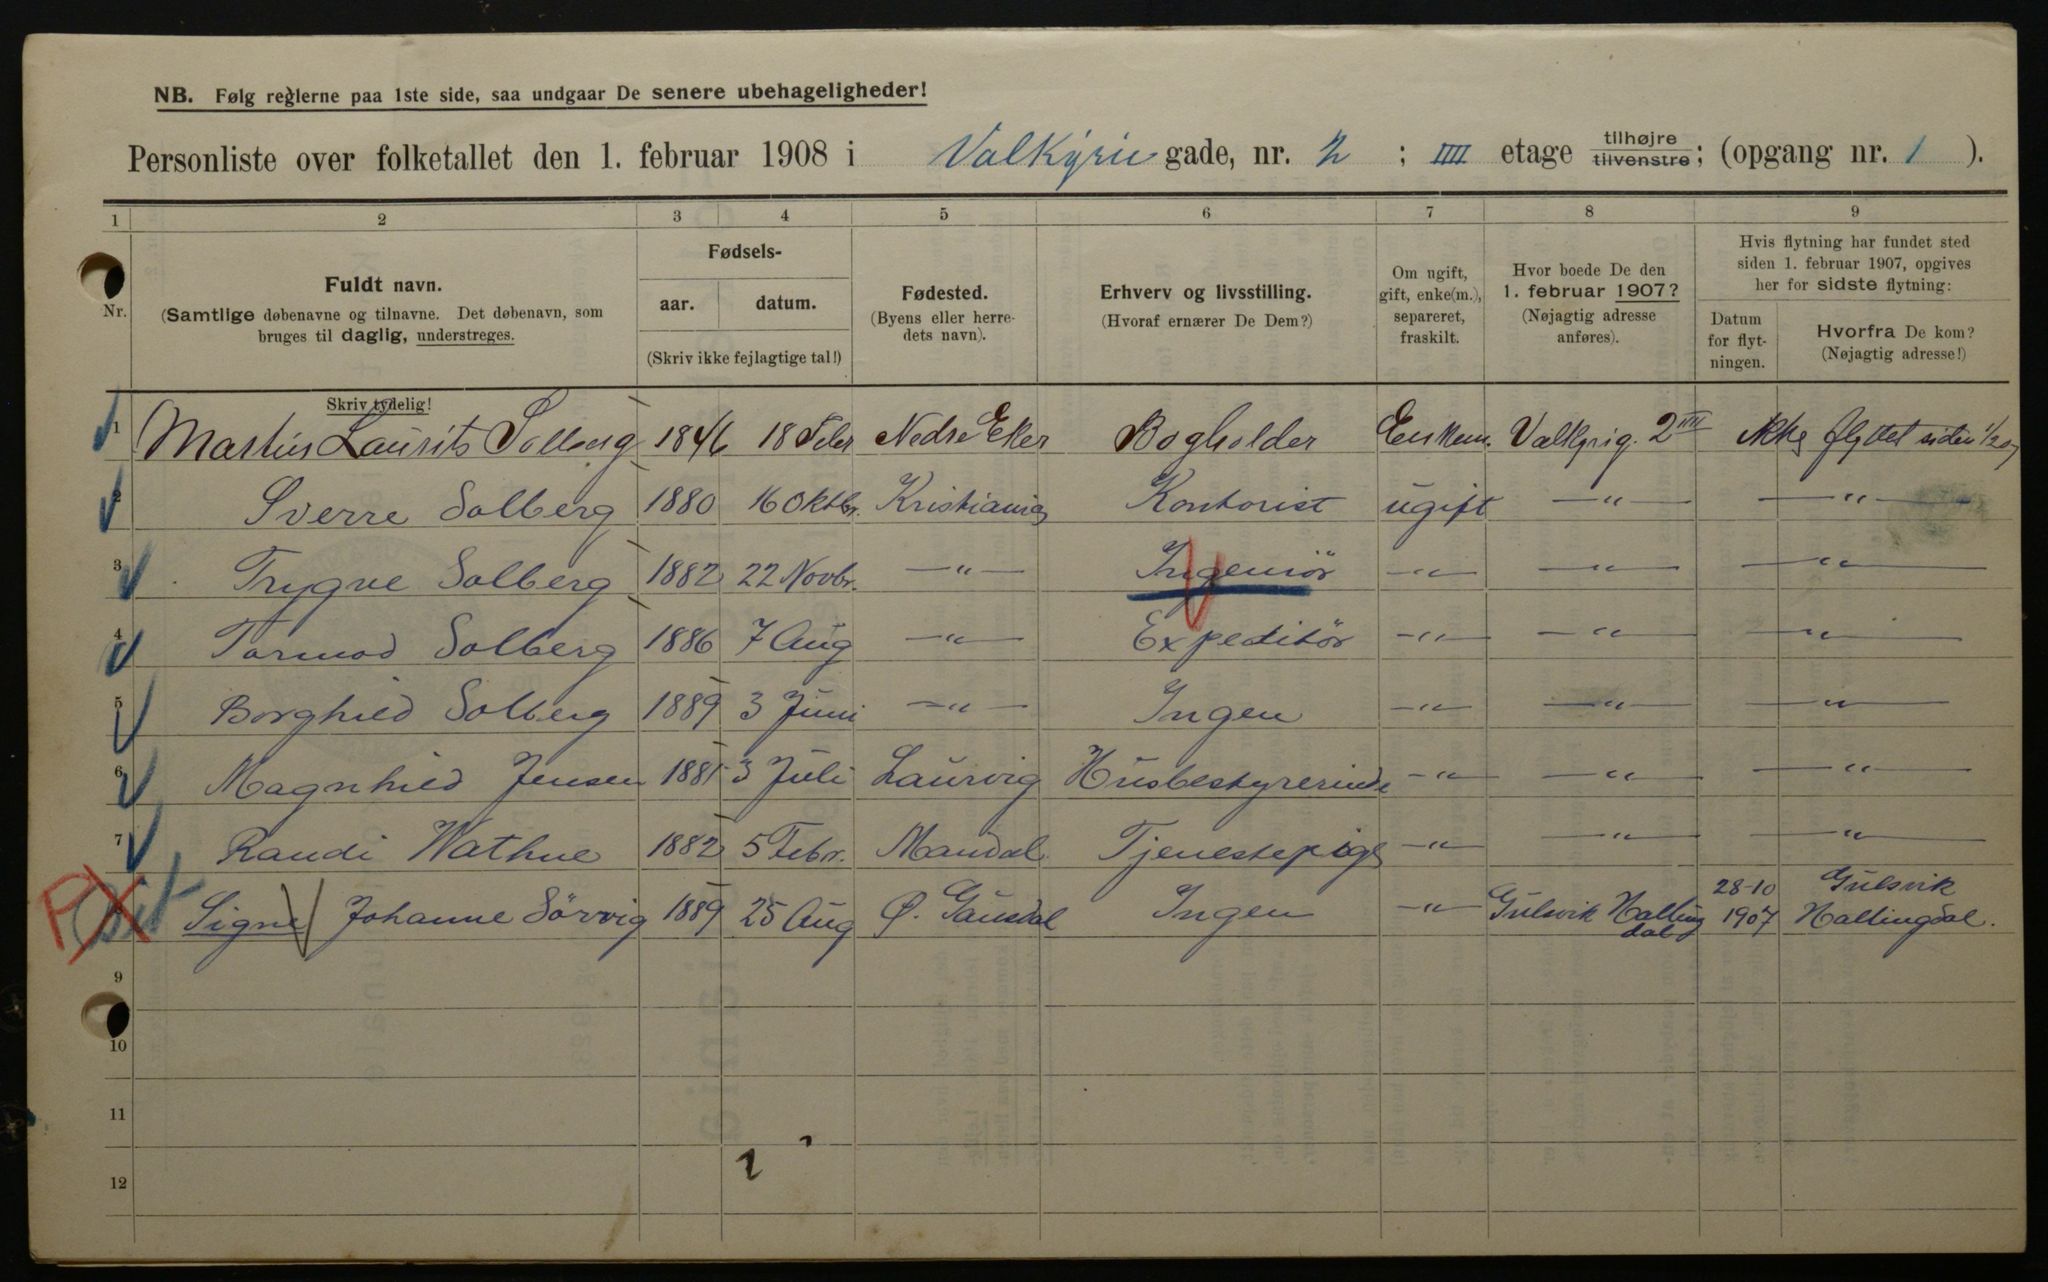 NB. Følg reglerne paa 1ste side, saa undgaar De senere ubehageligheder!
Personliste over folketallet den 1. februar 1908 i Valkyrie gade, nr. 2 ; IIII etage tilhøjre tilvenstre; (opgang nr. 1 ).
1 2 3 4 5 6 7 8 9
Nr.
Fuldt navn.
(Samtlige døbenavne og tilnavne. Det døbenavn, som
bruges til daglig, understreges.
Skriv tydelig!
Fødsels-
aar. datum.
(Skriv ikke fejlagtige tal!)
Fødested.
(Byens eller herre-
dets navn).
Erhverv og livsstilling.
(Hvoraf ernærer De Dem?)
Om ugift,
gift, enke(m.),
separeret,
fraskilt.
Hvor boede De den
1. februar 1907?
(Nøjagtig adresse
anføres).
Hvis flytning har fundet sted
siden 1. februar 1907, opgives
her for sidste flytning:
Datum
for flyt-
ningen.
Hvorfra De kom?
(Nøjagtig adresse!)
1 Martin Laurits Solberg 1846 18 Febr Nedre Eker Bogholder Enkem. Valkyrig. 2 IIII Ikke flyttet siden 1/2 07
2 Sverre Solberg 1880 16 Oktbr. Kristiania Kontorist ugift —"— —"—
3 Trygve Solberg 1882 22 Novbr. —"— Ingeniör —"— —"— —"—
4 Tormod Solberg 1886 7 Aug —"— Expeditör —"— —"— —"—
5 Borghild Solberg 1889 3 Juni —"— Ingen —"— —"— —"—
6 Magnhild Jensen 1881 3 Juli Laurvig Husbestyrerinde —"— —"— —"—
7 Randi Wathne 1882 5 Febr. Mandal Tjenestepige —"— —"— —"—
Signe Johanne Sörvig 1889 25 Aug Ø. Gausdal Ingen —"— Gulsvik Halling
dal 28-10
1907 Gulsvik
Hallingdal.
9
10
11
12